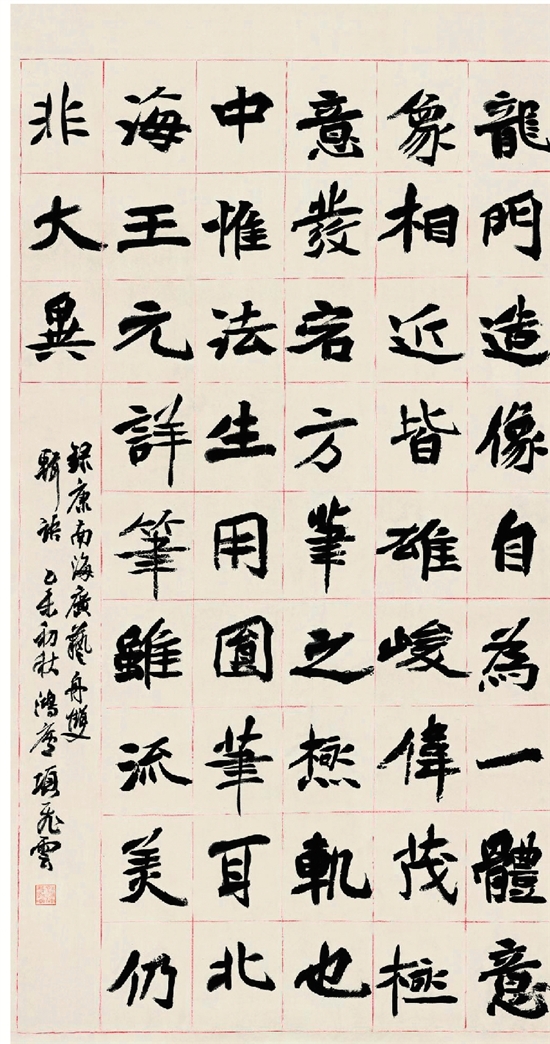 龍門造像自為一體意
象相近皆雄峻偉茂極
意發宕方筆之極軌也
中惟法生用圓筆耳北
海王元詳筆雖流美仍
非大異
錄康南海廣藝舟雙
楫語 乙未初秋 鴻廬 項飛雲